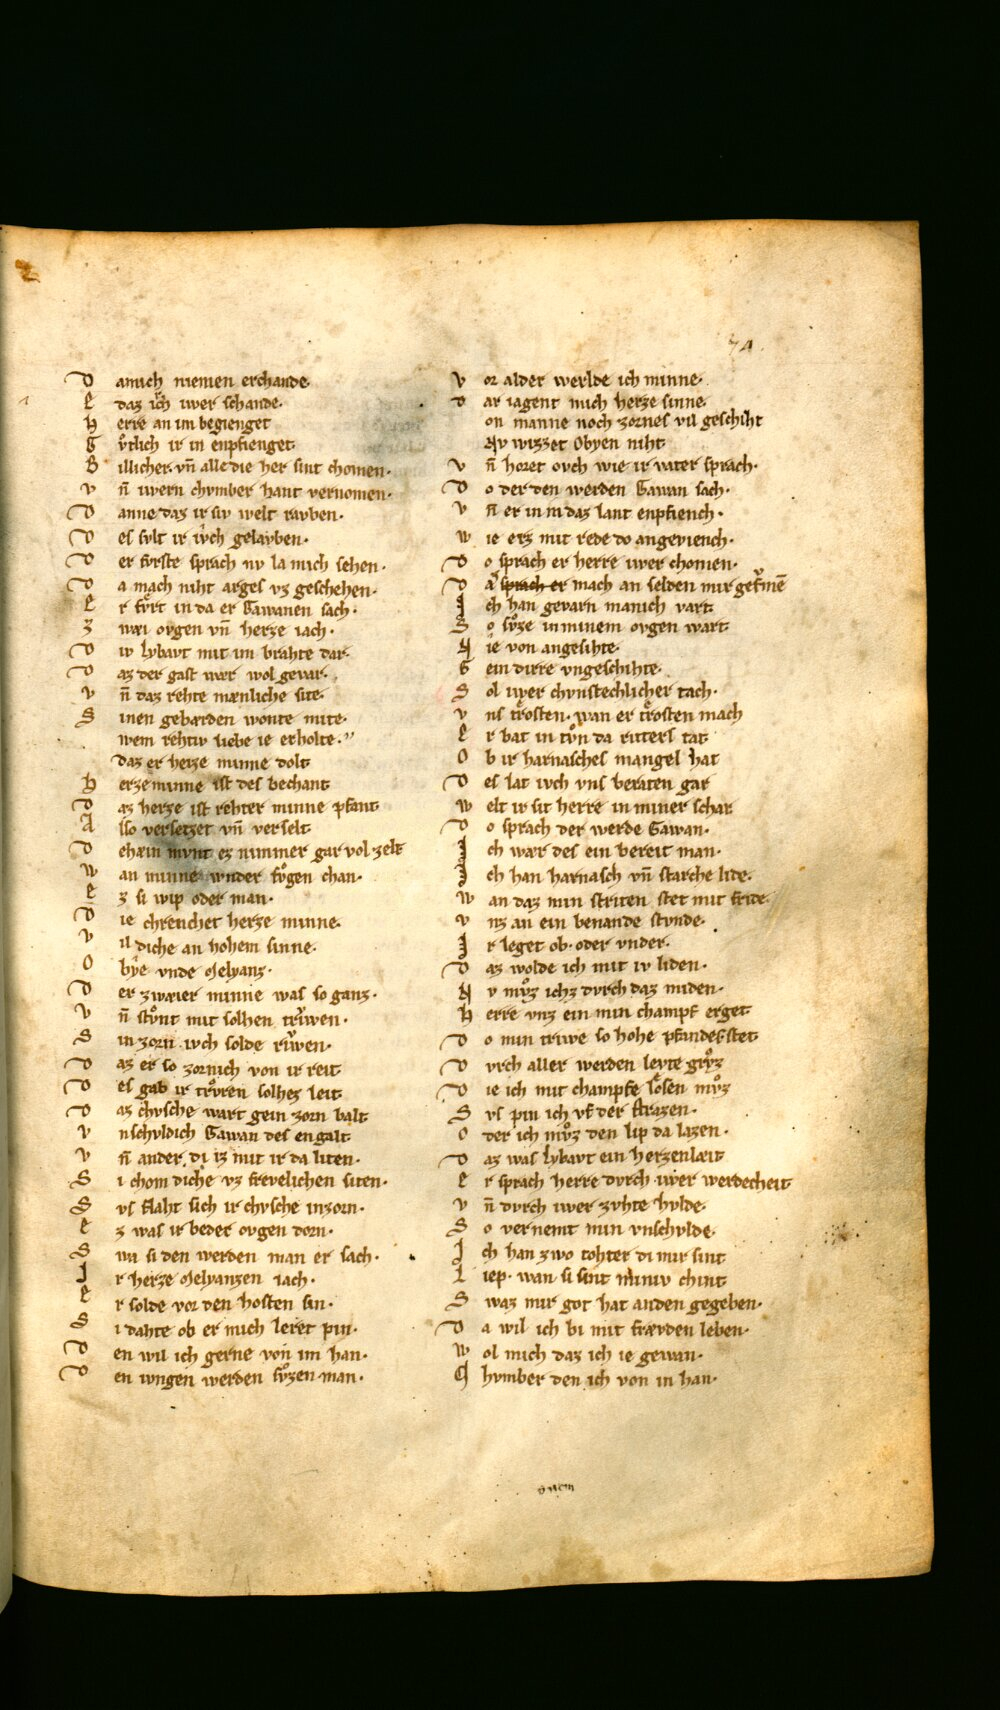 74
D amich niemen erchande·
E daz ich iwer schande·
H erre an im begienget
G vͦtlich ir in enpfienget
B illicher· vn̄ alle die her sint chomen·
v n̄ iwern chvmber hant vernomen·
D anne daz ir siv welt ravben·
D es svlt ir iv̂ch gelavben·
D er fvrste sprach nv la mich sehen·
D a mach niht arges vz geschehen·
E r fvͦrt in da er Gawanen sach·
Z wæi ovgen vn̄ herze iach·
D iv lybavt mit im brahte dar·
D az der gast wær wol gevar·
v n̄ daz rehte mænliche site·
S inen gebærden wonte mite·
wem rehtiv liebe ie erholte·
daz er herze minne dolt
H erze minne ist des bechant
D az herze ist rehter minne pfant
A lso versetzet vn̄ verselt
D ehæin mvnt ez nimmer gar vol zelt
w an minne wnder fvͦgen chan·
E z si wip oder man·
D ie chrenchet herze minne·
v il diche an hohem sinne·
O bẏe vnde Melyanz·
D er zwæier minne was so ganz·
v n̄ stvͦnt mit solhen trv̂wen·
S in zorn ivch solde rv̂wen·
D az er so zornich von ir reit
D es gab ir trvͦren solhez leit
D az chvsche wart gein zorn balt
v nschvldich Gawan des engalt
v n̄ ander· di iz mit ir da liten·
S i chom diche vz frevelichen siten·
S vs flaht sich ir chvsche in zorn·
E z was ir beder ovgen dorn·
S wa si den werden man er sach·
J r herze Melyanzen iach·
E r solde vor den hosten sin·
S i dahte ob er mich leret pin·
D en wil ich gerne von im han·
D en ivngen werden svͦzen man·
v or alder werlde ich minne·
D ar iagent mich herze sinne·
on manne noch zornes vil geschiht
Nv wizzet Obyen niht
v n̄ horet ovch wie ir vater sprach·
D o der den werden Gawan sach·
v n̄ er in in daz lant enpfiench·
w ie erz mit rede do angeviench·
D o sprach er herre iwer chomen·
D a sprach er mach an selden mir gefrvmē
J ch han gevarn manich vart
S o svͦze in minem ovgen wart
N ie von angesihte·
G ein dirre vngeschihte·
S ol iwer chvnftechlicher tach·
v ns trôsten· wan er trôsten mach
E r bat in tvͦn da ritters tat
O b ir harnasches mangel hat
D es lat ivch vns beraten gar
w elt ir sit herre in miner schar
D o sprach der werde Gawan·
J ch wær des ein bereit man·
J ch han harnasch vn̄ starche lide·
w an daz min striten stet mit fride·
v nz an ein benande stvnde·
J r leget ob· oder vnder·
D az wolde ich mit iv liden·
N v mvͦz ichz dvrch daz miden·
H erre vnz ein min champf erget
D o min triwe so hohe pfandes stet
D vrch aller werden levte grvͦz
D ie ich mit champfe lôsen mvͦz
S vs pin ich vf der strazen·
O der ich mvͦz den lip da lazen·
D az was lybavt ein herzenlæit
E r sprach herre dvrch iwer werdecheit
v n̄ dvrch iwer zvhte hvlde·
S o vernemt min vnschvlde·
J ch han zwo tohter di mir sint
L iep· wan si sint miniv chint
S waz mir got hat an den gegeben·
D a wil ich bi mit frævden leben·
W ol mich daz ich ie gewan·
C hvmber den ich von in han·